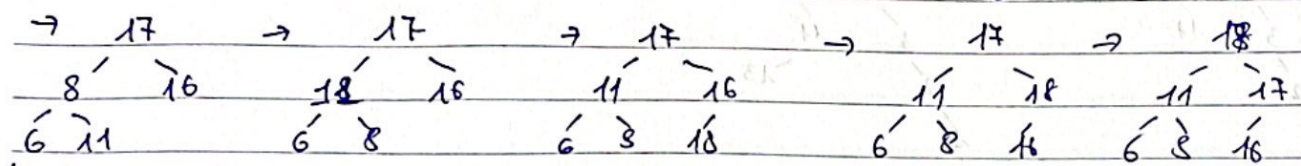 → 17 → 17 → 17 → 17 → 18
8 16 11 16 11 16 11 18 11 17
6 11 6 8 6 8 18 6 8 16 6 8 16